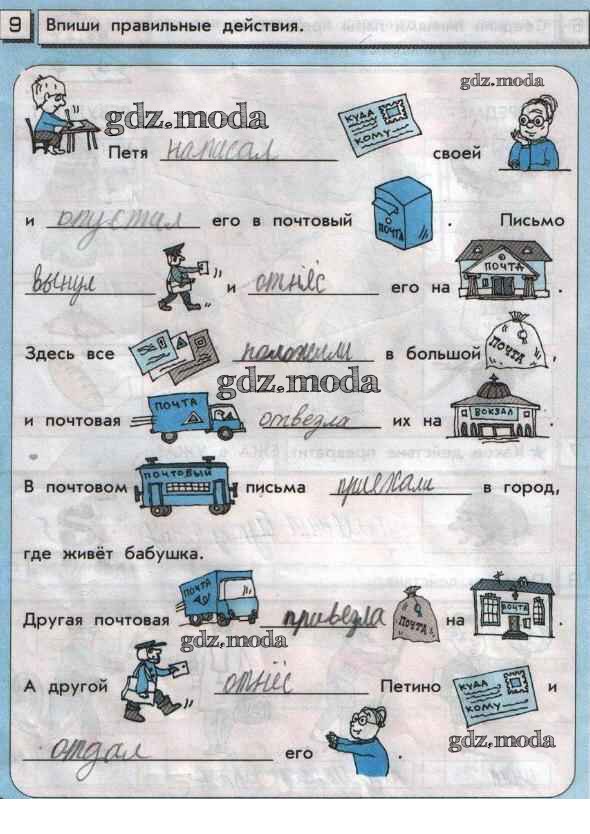 9 Впиши правильные действия.
gdz.moda
gdz.moda
КУДА
КОМУ
Петя написал своей
и опустил его в почтовый . Письмо
ПОЧТА
вынул и отнёс его на .
ПОЧТА
Здесь все положили в большой ,
ПОЧТА
gdz.moda
ПОЧТА
и почтовая отвезла их на .
ВОКЗАЛ
ПОЧТОВЫЙ
В почтовом письма приехали в город,
где живёт бабушка.
ПОЧТА
Другая почтовая привезла на .
ПОЧТА
ПОЧТА
gdz.moda
А другой отнёс Петино и
КУДА
КОМУ
отдал его .
gdz.moda